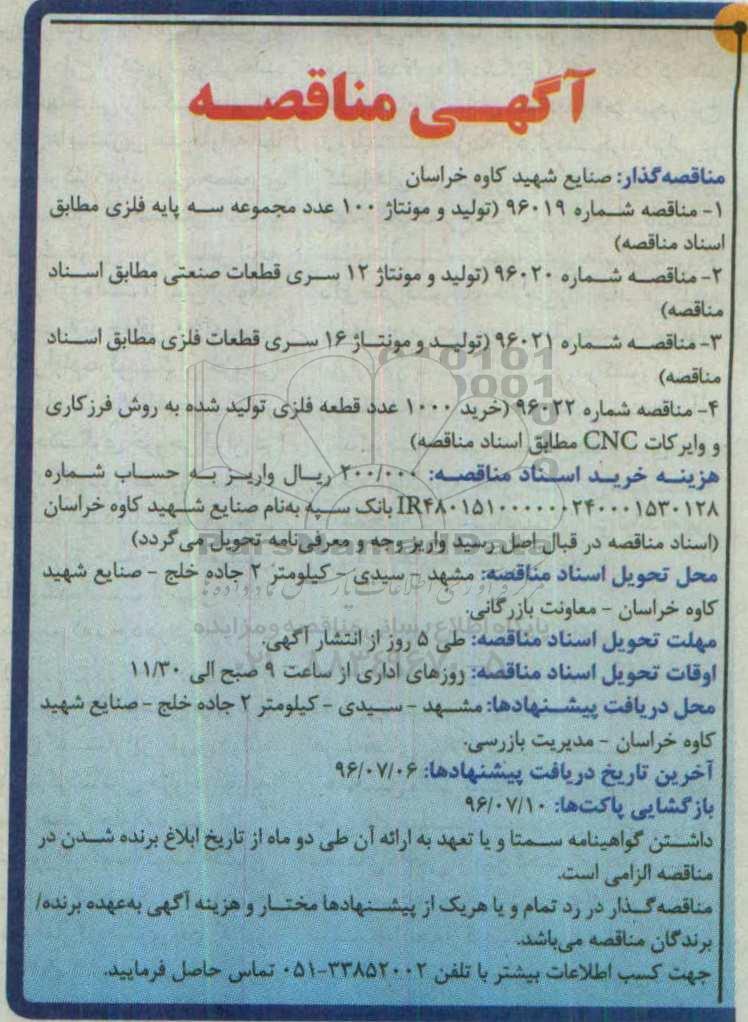 آگهی مناقصه
مناقصه‌گذار: صنایع شهید کاوه خراسان
۱- مناقصه شماره ۹۶۰۱۹ (تولید و مونتاژ ۱۰۰ عدد مجموعه سه پایه فلزی مطابق
اسناد مناقصه)
۲- مناقصه شماره ۹۶۰۲۰ (تولید و مونتاژ ۱۲ سری قطعات صنعتی مطابق اسناد
مناقصه)
۳- مناقصه شماره ۹۶۰۲۱ (تولید و مونتاژ ۱۶ سری قطعات فلزی مطابق اسناد
مناقصه)
۴- مناقصه شماره ۹۶۰۲۲ (خرید ۱۰۰۰ عدد قطعه فلزی تولید شده به روش فرزکاری
و وایرکات CNC مطابق اسناد مناقصه)
هزینه خرید اسناد مناقصه: ۲۰۰/۰۰۰ ریال واریز به حساب شماره
بانک سپه به‌نام صنایع شهید کاوه خراسان
(اسناد مناقصه در قبال اصل رسید واریز وجه و معرفی‌نامه تحویل می‌گردد)
محل تحویل اسناد مناقصه: مشهد - سیدی - کیلومتر ۲ جاده خلج - صنایع شهید
کاوه خراسان - معاونت بازرگانی.
مهلت تحویل اسناد مناقصه: طی ۵ روز از انتشار آگهی.
اوقات تحویل اسناد مناقصه: روزهای اداری از ساعت ۹ صبح الی ۱۱/۳۰
محل دریافت پیشنهادها: مشهد - سیدی - کیلومتر ۲ جاده خلج - صنایع شهید
کاوه خراسان - مدیریت بازرسی.
آخرین تاریخ دریافت پیشنهادها: ۹۶/۰۷/۰۶
بازگشایی پاکت‌ها: ۹۶/۰۷/۱۰
داشتن گواهینامه سمتا و یا تعهد به ارائه آن طی دو ماه از تاریخ ابلاغ برنده شدن در
مناقصه الزامی است.
مناقصه‌گذار در رد تمام و یا هریک از پیشنهادها مختار و هزینه آگهی به‌عهده برنده/
برندگان مناقصه می‌باشد.
جهت کسب اطلاعات بیشتر با تلفن ۳۳۸۵۲۰۰۲-۰۵۱ تماس حاصل فرمایید.